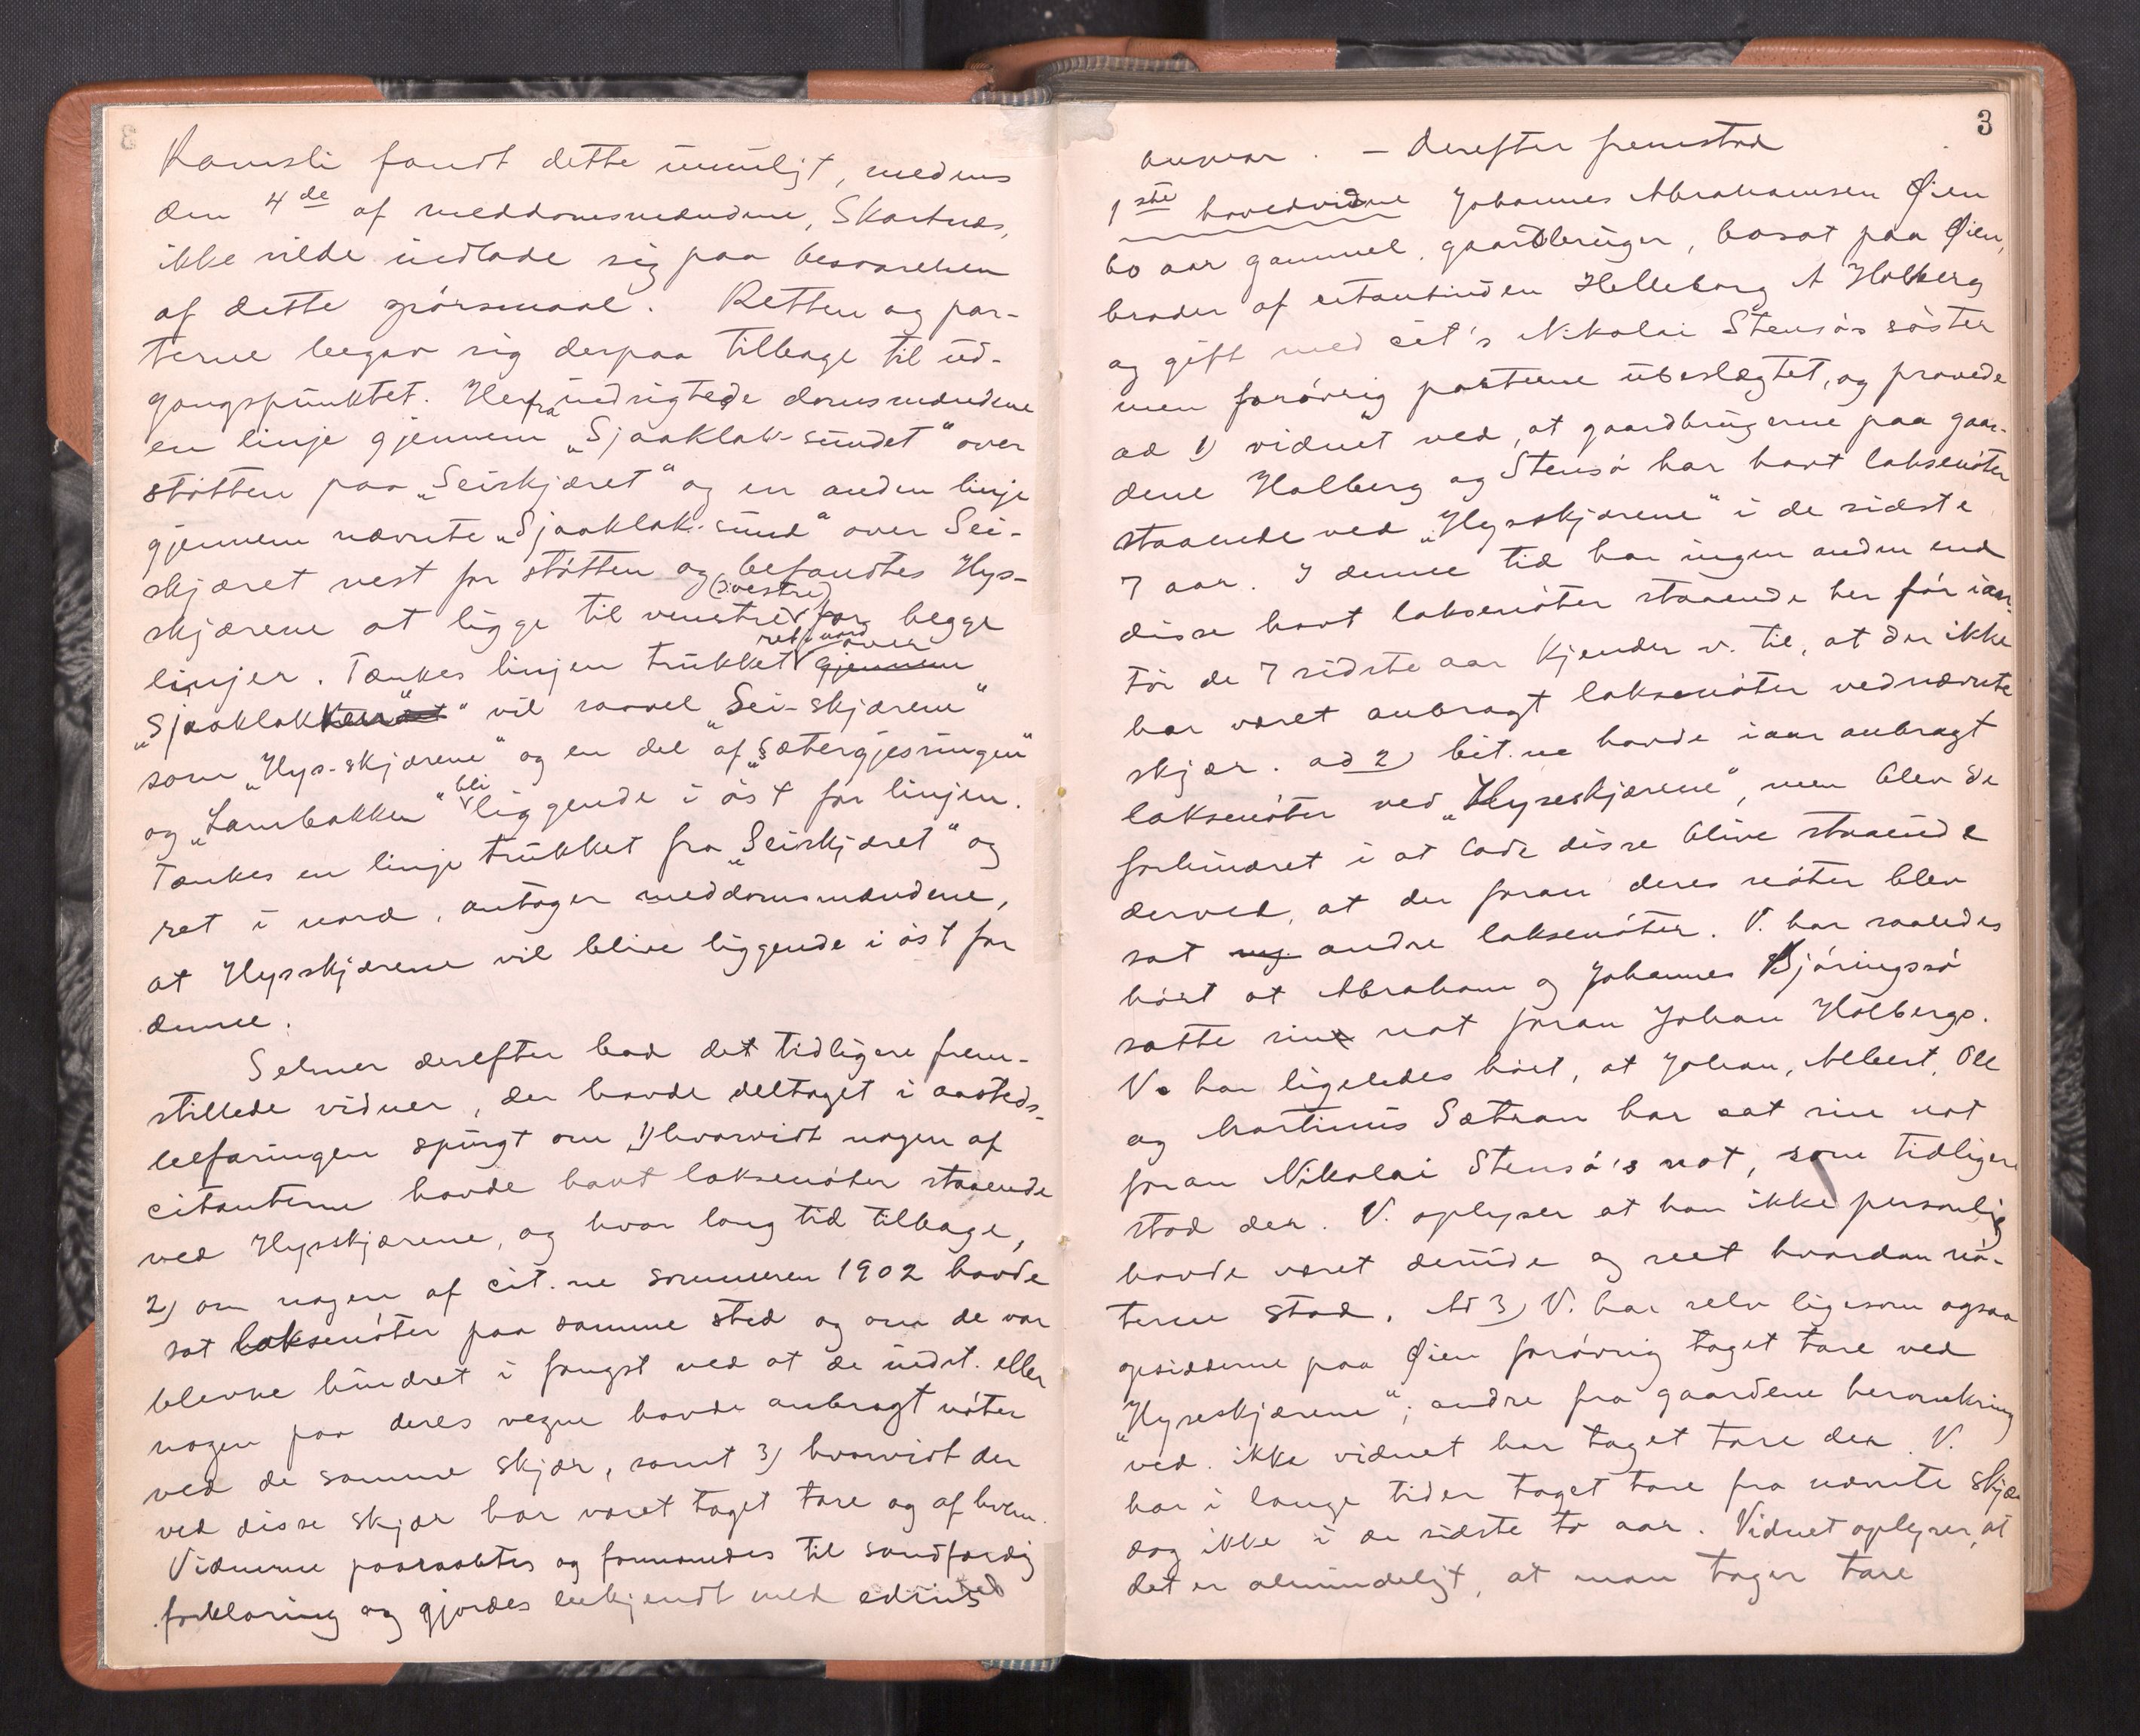 Ramsli fandt dette umuligt, medens
den 4de af meddomsmændene, Skartnes,
ikke vilde indlade sig paa besvarelsen
af dette spörsmaal. Retten og par-
terne begav sig derpaa tilbage til ud-
gangspunktet. Herfra udsigtede domsmændene
en linje gjennem „Sjaaklak-sundet“ over
stötten paa „Seiskjæret“ og en anden linje
gjennem nævnte „Sjaaklak-sund“ over Sei-
skjæret vest for stötten og befandtes Hys-
skjærene at ligge til venstre (ɔ: vestre) for begge
linjer. Tænkes linjen trukket ret i nord over gjennem
„Sjaaklakken“ vil saavel „Sei-skjærene“
som „Hys-skjærene“ og en del af „Sætergjesringen“
og „Lambakken“ bli liggende i öst for linjen.
Tænkes en linje trukket fra „Seiskjæret“ og
ret i nord, antager meddomsmændene,
at Hysskjærene vil blive liggende i öst for
denne.
Selmer derefter bad det tidligere frem-
stillede vidner, der havde deltaget i aasteds-
befaringen spurgt om 1) hvorvidt nogen af
citanterne havde havt laksenöter staaende
ved Hysskjærene, og hvor lang tid tilbage,
2) om nogen af cit.ne sommeren 1902 havde
sat laksenöter paa samme sted og om de var
blevne hindret i fangst ved at de indst. eller
nogen paa deres vegne havde anbragt nöter
ved de samme skjær, samt 3) hvorvidt der
ved disse skjær har været taget tare og af hvem.
Vidnerne paaraabtes og formanedes til sandfærdig
forklaring og gjordes bekjendt med edens
3
ansvar. – Derefter fremstod
1ste hovedvidne Johannes Abrahamsen Øien
60 aar gammel, gaardbruger, bosat paa Øien,
broder af citantinden Helleborg A Holberg
og gift med cit's Nikolai Stensös söster
men forövrig parterne ubeslægtet, og provede
ad 1) vidnet ved, at gaardbrugerne paa gaar-
dene Holberg og Stensö har havt laksenöter
staaende ved „Hysskjærene“ i de sidste
7 aar. I denne tid har ingen anden end
disse havt laksenöter staaende her för iaar.
För de 7 sidste aar kjender v. til, at der ikke
har været anbragt laksenöter ved nævnte
skjær. ad 2) Cit.ne havde iaar anbragt
laksenöter ved „Hyseskjærene“, men blev de
forhindret i at lade disse blive staaende
derved, at der foran deres nöter blev
sat ny andre laksenöter. V. har saaledes
hört at Abraham og Johannes Björingsö
satte sine not foran Johan Holbergs.
V. har ligeledes hört, at Johan, Albert, Ole
og Martinus Sætran har sat sin not
foran Nikolai Stensö's not, som tidligere
stod der. V. oplyser at han ikke personlig
havde været deride og seet hvordan nö-
terne stod. Ad 3) V. har selv ligesom ogsaa
opsidderne paa Øien forövrig taget tare ved
„Hyseskjærene“; andre fra gaardene heromkring
ved ikke vidnet har taget tare der. V.
har i lange tider taget tare fra nævnte skjær
dog ikke i de sidste to aar. Vidnet oplyser, at
det er almindeligt, at man tager tare